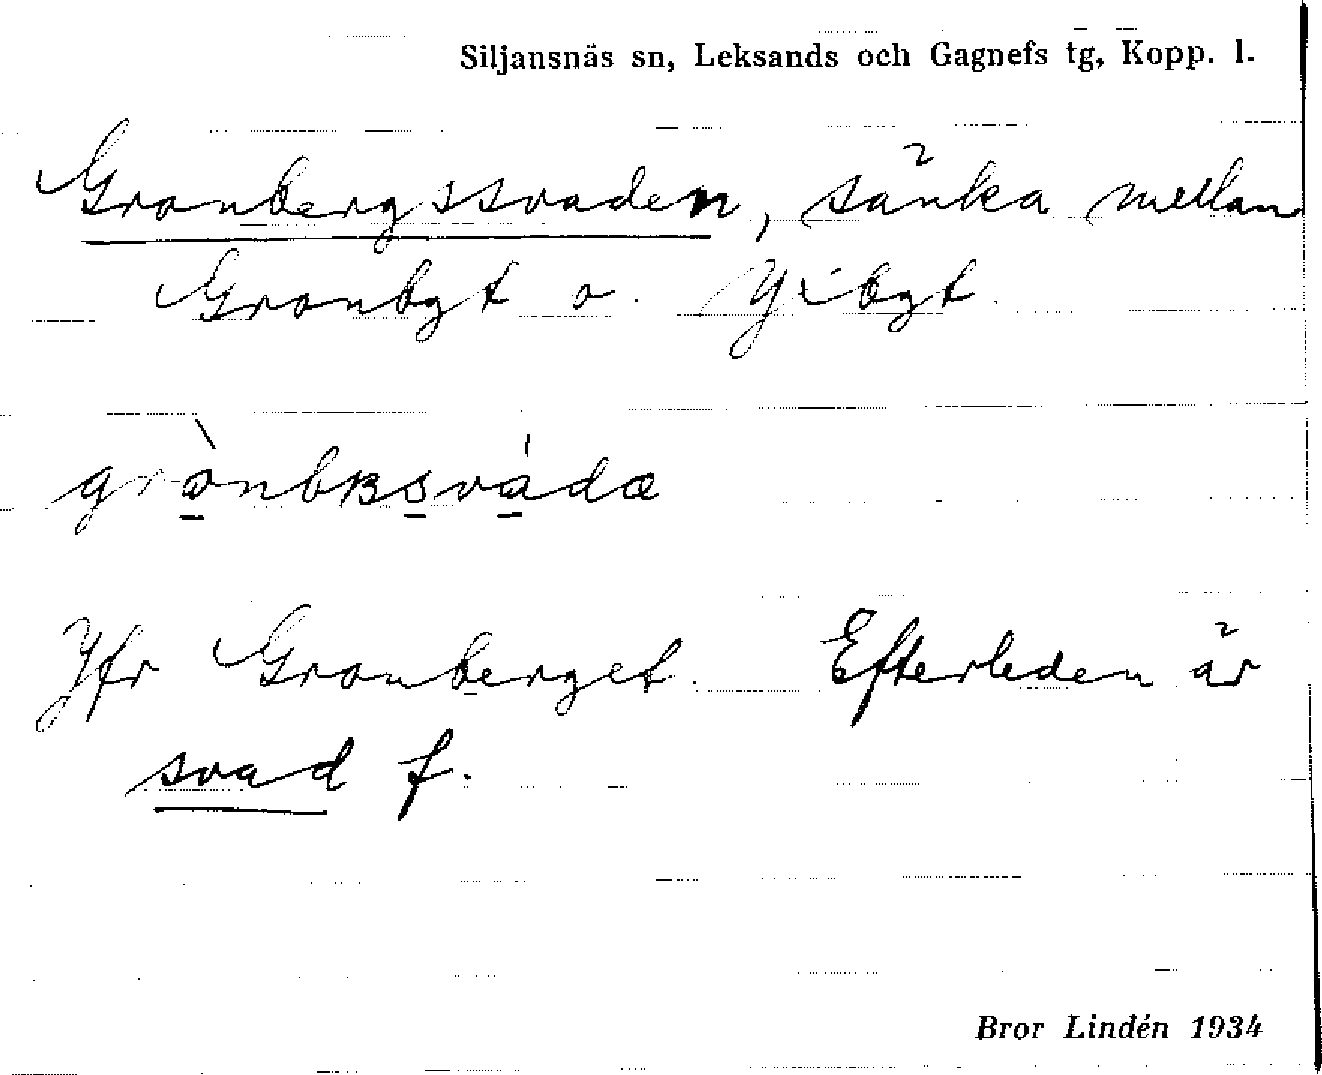 Siljansnäs sn, Leksands och Gagnefs tg, Kopp. l.
Gronbergssvaden, sänka mellan
Gronbgt o.
Jfr Gronberget. Efterleden är
svad f.
Bror Lindén 1934